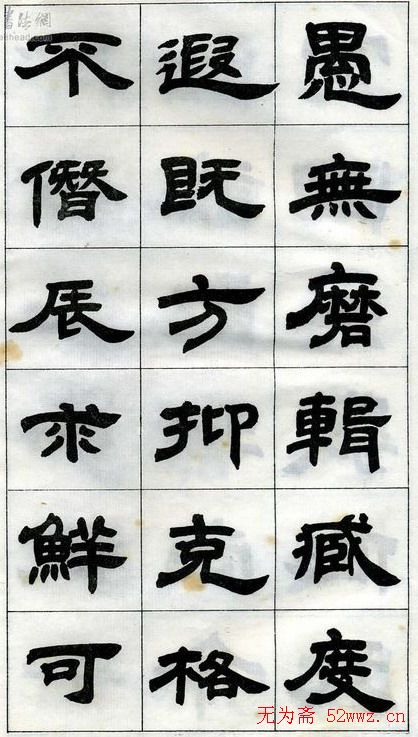 愚無磨輯臧度
遐既方抑克格
不僭辰求鮮可
书法網
无为斋 52wwz.cn